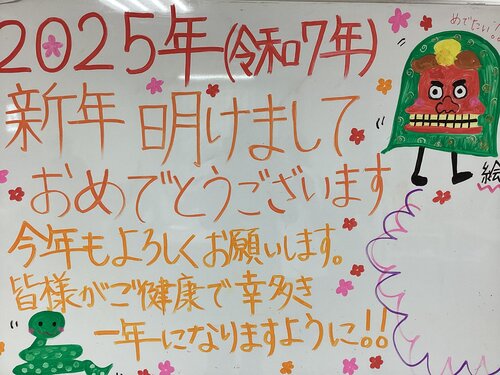 2025年(令和7年)
めでたい!!
新年 明けまして
おめでとうございます
今年もよろしくお願いします。
皆様がご健康で幸多き
一年になりますように!!
絵